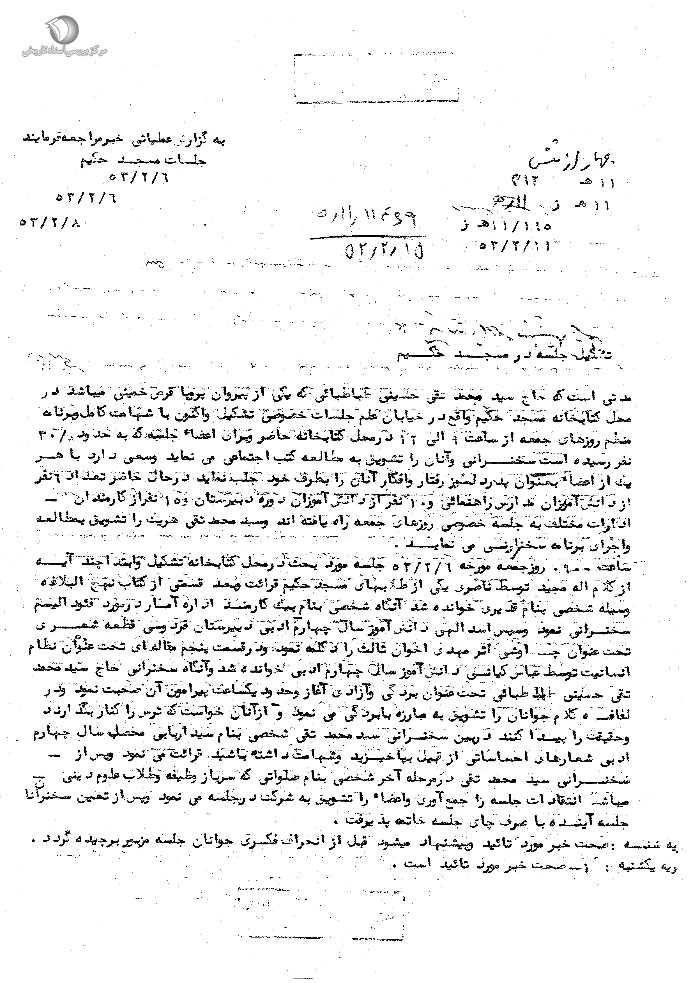 مرکز بررسی اسناد تاریخی
به گزارش عملیاتی خبر مراجعه فرمایند
جلسات مسجد حکیم
۵۳/۲/۶
۵۳/۲/۶
۵۳/۲/۸
چهار ارزش
۱۱ هـ ۳۱۲
۱۱ هـ ز
۱۱/۱۱۵ هـ ز
۵۳/۲/۱۱
۵۳/۲/۱۵
تشکیل جلسه در مسجد حکیم
مدتی است که حاج سید محمد تقی حسینی طباطبائی که یکی از پیروان پروپا قرص خمینی میباشد در
محل کتابخانه مسجد حکیم واقع در خیابان علم جلسات خصوصی تشکیل واکنون با شهامت کامل وبرنامه
منظم روزهای جمعه از ساعت ۹ الی ۱۲ در محل کتابخانه حاضر وبرای اعضاء جلسه که به حدود ۳۰
نفر رسیده است سخنرانی وآنان را تشویق به مطالعه کتب اجتماعی می نماید وسعی دارد با هر
یک از اعضاء بعنوان پدر دلسوز رفتار وافکار آنان را بطرف خود جلب نماید در حال حاضر تعداد ۹ نفر
از دانش آموزان مدارس راهنمائی و ۱۰ نفر از دانش آموزان دوره دبیرستان و ۱۵ نفر از کارمندان
ادارات مختلف به جلسه خصوصی روزهای جمعه راه یافته اند وسید محمد تقی هریک را تشویق بمطالعه
واجرای برنامه سخنرانی می نماید .
ساعت ۰۹۰۰ روز جمعه مورخه ۵۳/۲/۶ جلسه مورد بحث در محل کتابخانه تشکیل وابتدا چند آیه
از کلام اله مجید توسط ناصری یکی از طلبههای مسجد حکیم قرائت وبعد قسمتی از کتاب نهج البلاغه
وسیله شخصی بنام قدیری خوانده شد آنگاه شخصی بنام بیک کارمند اداره آمار در مورد فئودالیسم
سخنرانی نمود وسپس اسد الهی دانش آموز سال چهارم ادبی دبیرستان فردوسی قطعه شعری
تحت عنوان چاوشی اثر مهدی اخوان ثالث را دکلمه نمود ودر قسمت پنجم مقاله ای تحت عنوان نظام
انسانیت توسط عباس کیانی دانش آموز سال چهارم ادبی خوانده شد وآنگاه سخنرانی حاج سید محمد
تقی حسینی طباطبائی تحت عنوان بردگی وآزادی آغاز وحدود یکساعت پیرامون آن صحبت نمود ودر
لفافه کلام جوانان را تشویق به مبارزه با بردگی می نمود و از آنان خواست که ترس را کنار بگذارند
وحقیقت را پیدا کنند در بین سخنرانی سید محمد تقی شخصی بنام سید اربابی محصل سال چهارم
ادبی شعارهای احساساتی از قبیل بپاخیزید وشهامت داشته باشید قرائت می نمود وپس از
سخنرانی سید محمد تقی در مرحله آخر شخصی بنام صلواتی که سرباز وظیفه وطلاب علوم دینی
میباشد انتقادات جلسه را جمع آوری واعضاء را تشویق به شرکت در جلسه می نمود وپس از تعیین سخنران
جلسه آینده با صرف چای جلسه خاتمه پذیرفت .
یه شنبه : صحت خبر مورد تائید وپیشنهاد میشود قبل از انحراف فکری جوانان جلسه مزبور برچیده گردد .
ویه یکشنبه : صحت خبر مورد تائید است .